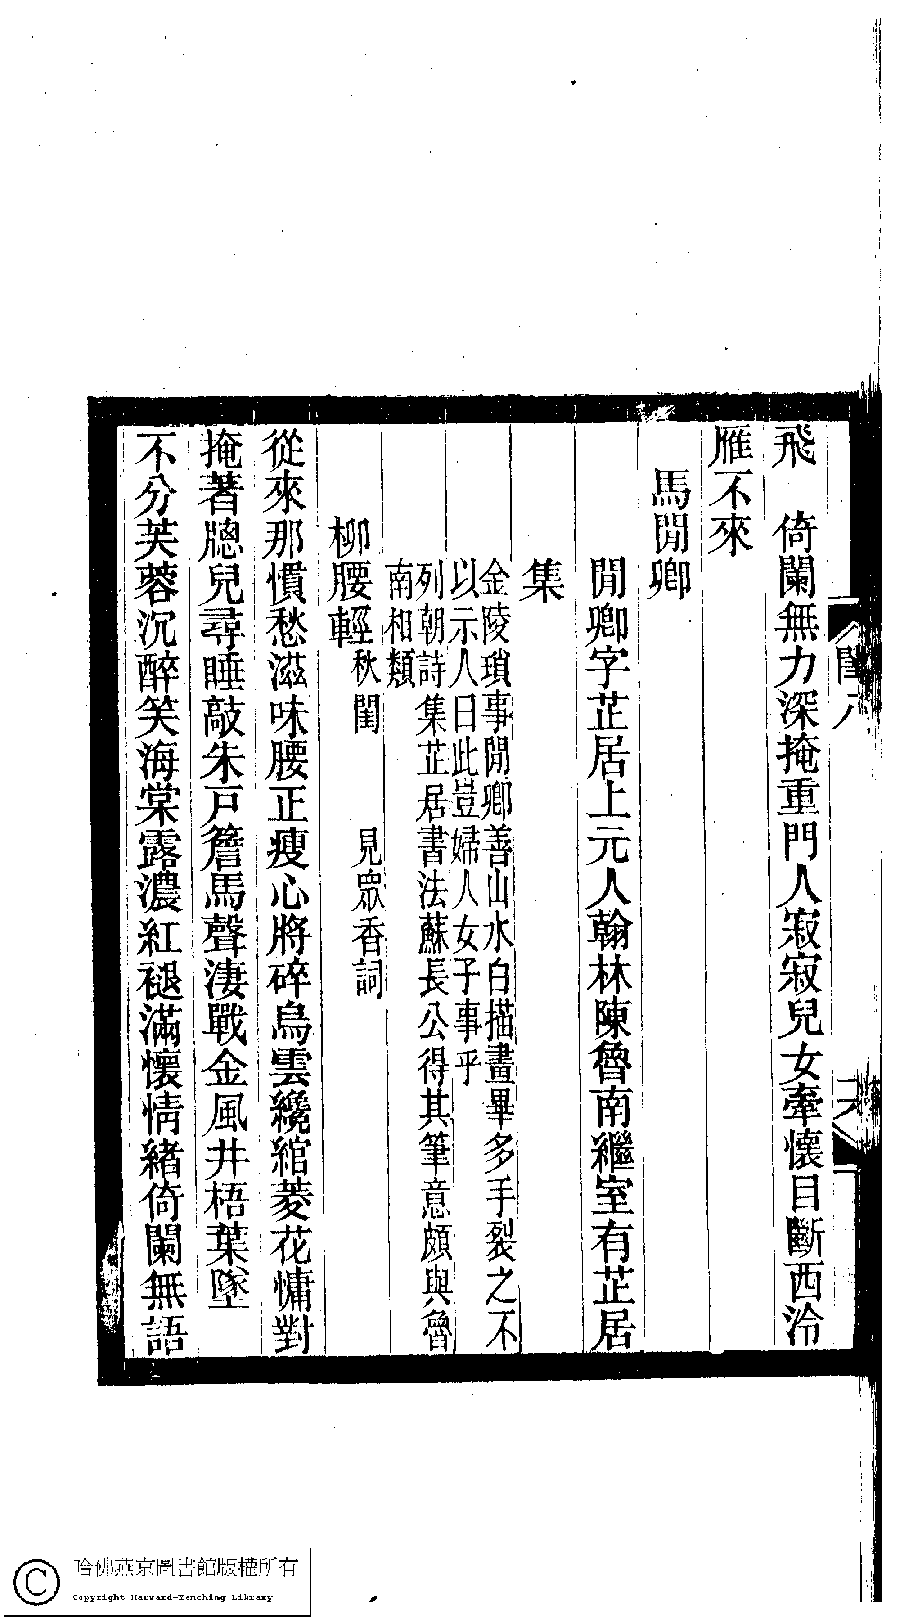 飛　倚闌無力深掩重門人寂寂兒女牽懷目斷西泠
雁不來
馬閒卿
閒卿字芷居上元人翰林陳魯南繼室有芷居
集
金陵瑣事閒卿善山水白描畫畢多手裂之不
以示人曰此豈婦人女子事乎
列朝詩集芷居書法蘇長公得其筆意頗與魯
南相類
柳腰輕秋閨　見眾香詞
從來那慣愁滋味腰正瘦心將碎烏雲纔綰菱花慵對
掩著牕兒尋睡敲朱戸簷馬聲淒戰金風井梧葉墜
不分芙蓉沉醉笑海棠露濃紅褪滿懷情緒倚闌無語
哈佛燕京圖書館版權所有
Copyright Harvard-Yenching Library